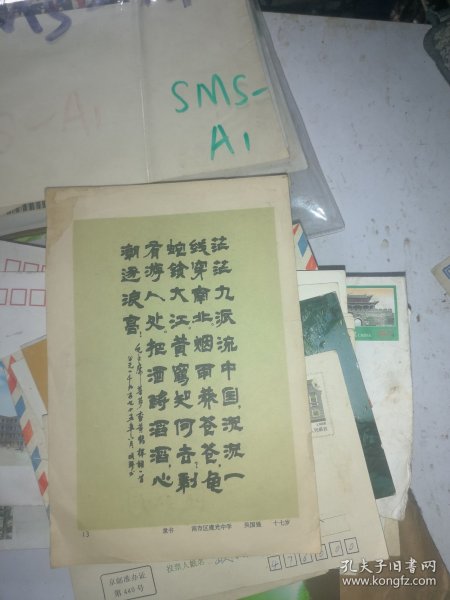 SMS-
A1
茫茫九派流中国，沉沉一
线穿南北。烟雨莽苍苍，龟
蛇锁大江。黄鹤知何去？剩
有游人处。把酒酹滔滔，心
潮逐浪高！
13 隶书 南市区光中学 十七岁
京邮准办证
第440号
投票人姓名
孔夫子旧书网
www.kongfz.com